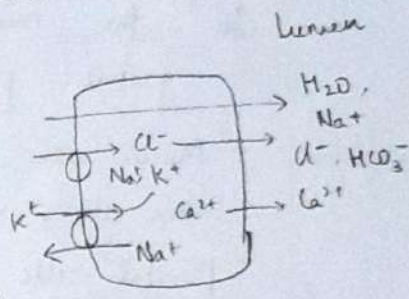 Lumen
H2O,
Na+
Cl- Cl-, HCO3-
Na+ K+
Ca2+ Ca2+
K+
Na+